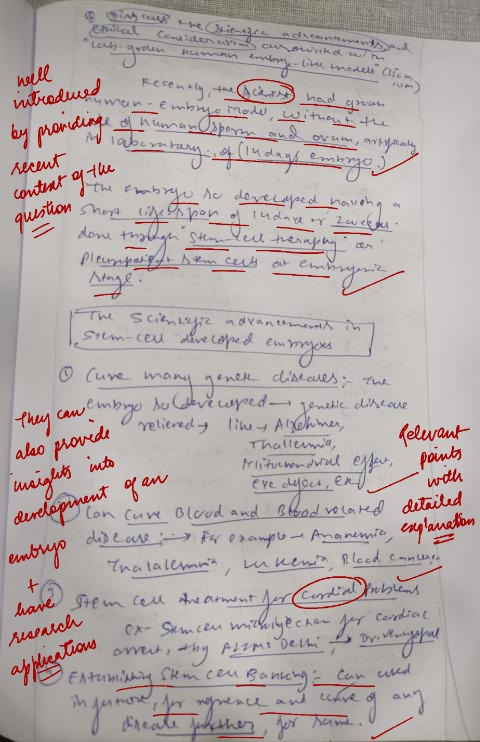 Q Discuss the scientific advancements and
ethical considerations associated with
"lab-grown human embryo-like models" (10m,
Recently, the scientist had grown
human-embryo model, without the
use of human sperm and ovum, artificially
in laboratory. of (14 days embryo.)
The embryo so developed having a
short lifespan of 14 days or 2 weeks.
done through "stem-cell therapy" or
Pleuripotent stem cells at embryonic
stage.
well
introduced
by providing
recent
context of the
question
The Scientific advancements in
stem-cell developed embryos
① Cure many genetic diseases:- The
embryo so developed → genetic disease
relieved → like → Alzhimer,
Thallemia,
Mitochondrial effect,
eye defect, ex
② Can cure Blood and Blood related
disease:→ For example → Anaemia,
Thalalemmia, lukemia, Blood cancer
③ Stem cell treatment for Cardial Problems
ex- Stem cell microinjection for cardiac
arrest, by AIIMS Delhi, → Dr. Venugopal
④ Establishing Stem Cell Banking:- Can used
in future, for and cure of any
disease further, for same.
They can
also provide
insights into
development of an
embryo
+
have
research
applications
Relevant
points
with
detailed
explanation